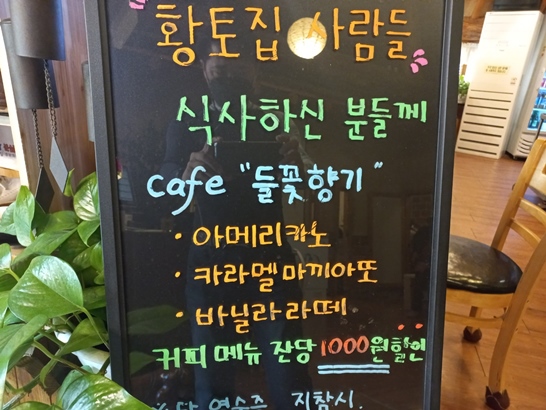 황토집 사람들
식사하신 분들께
cafe "들꽃향기"
· 아메리카노
· 카라멜마끼아또
· 바닐라라떼
커피 메뉴 잔당 1000원할인
영수증 지참시.